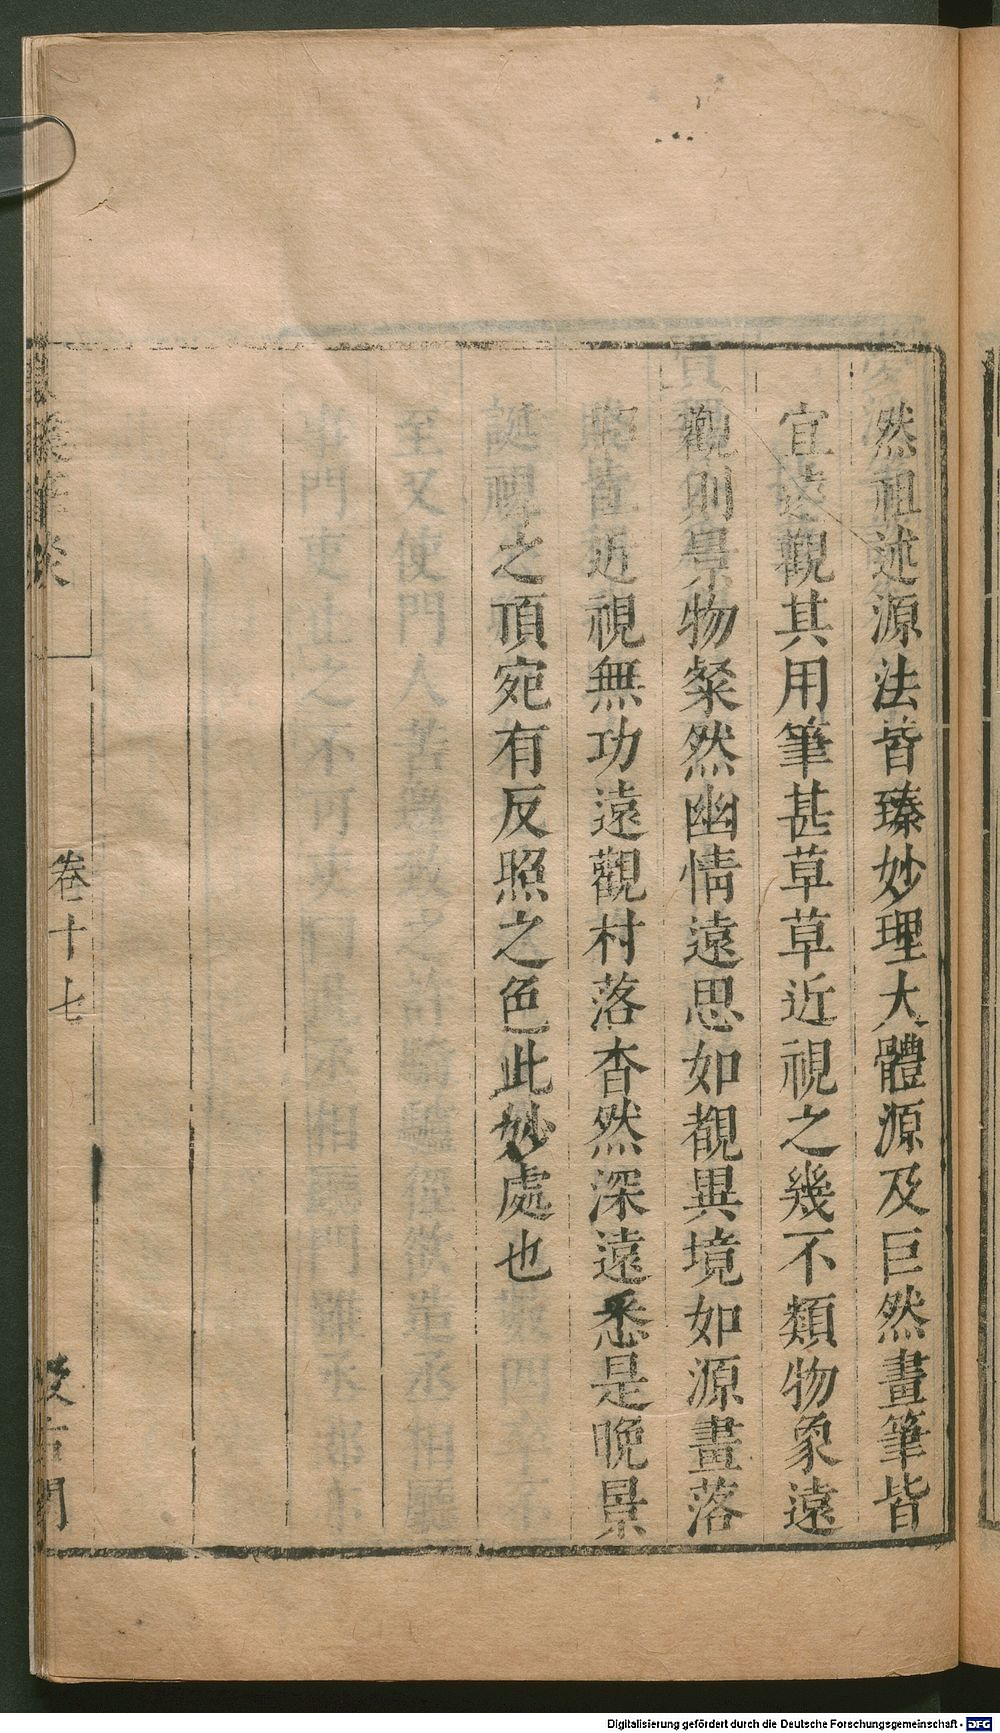 然祖述源法皆臻妙理大體源及巨然畫筆皆
宜遠觀其用筆甚草草近視之幾不類物象遠
觀則景物粲然幽情遠思如覩異境如源畫落
照皆近視無功遠觀村落杳然深遠悉是晚景
之頂宛有反照之色此妙處也
卷十七
Digitalisierung gefördert durch die Deutsche Forschungsgemeinschaft - DFG